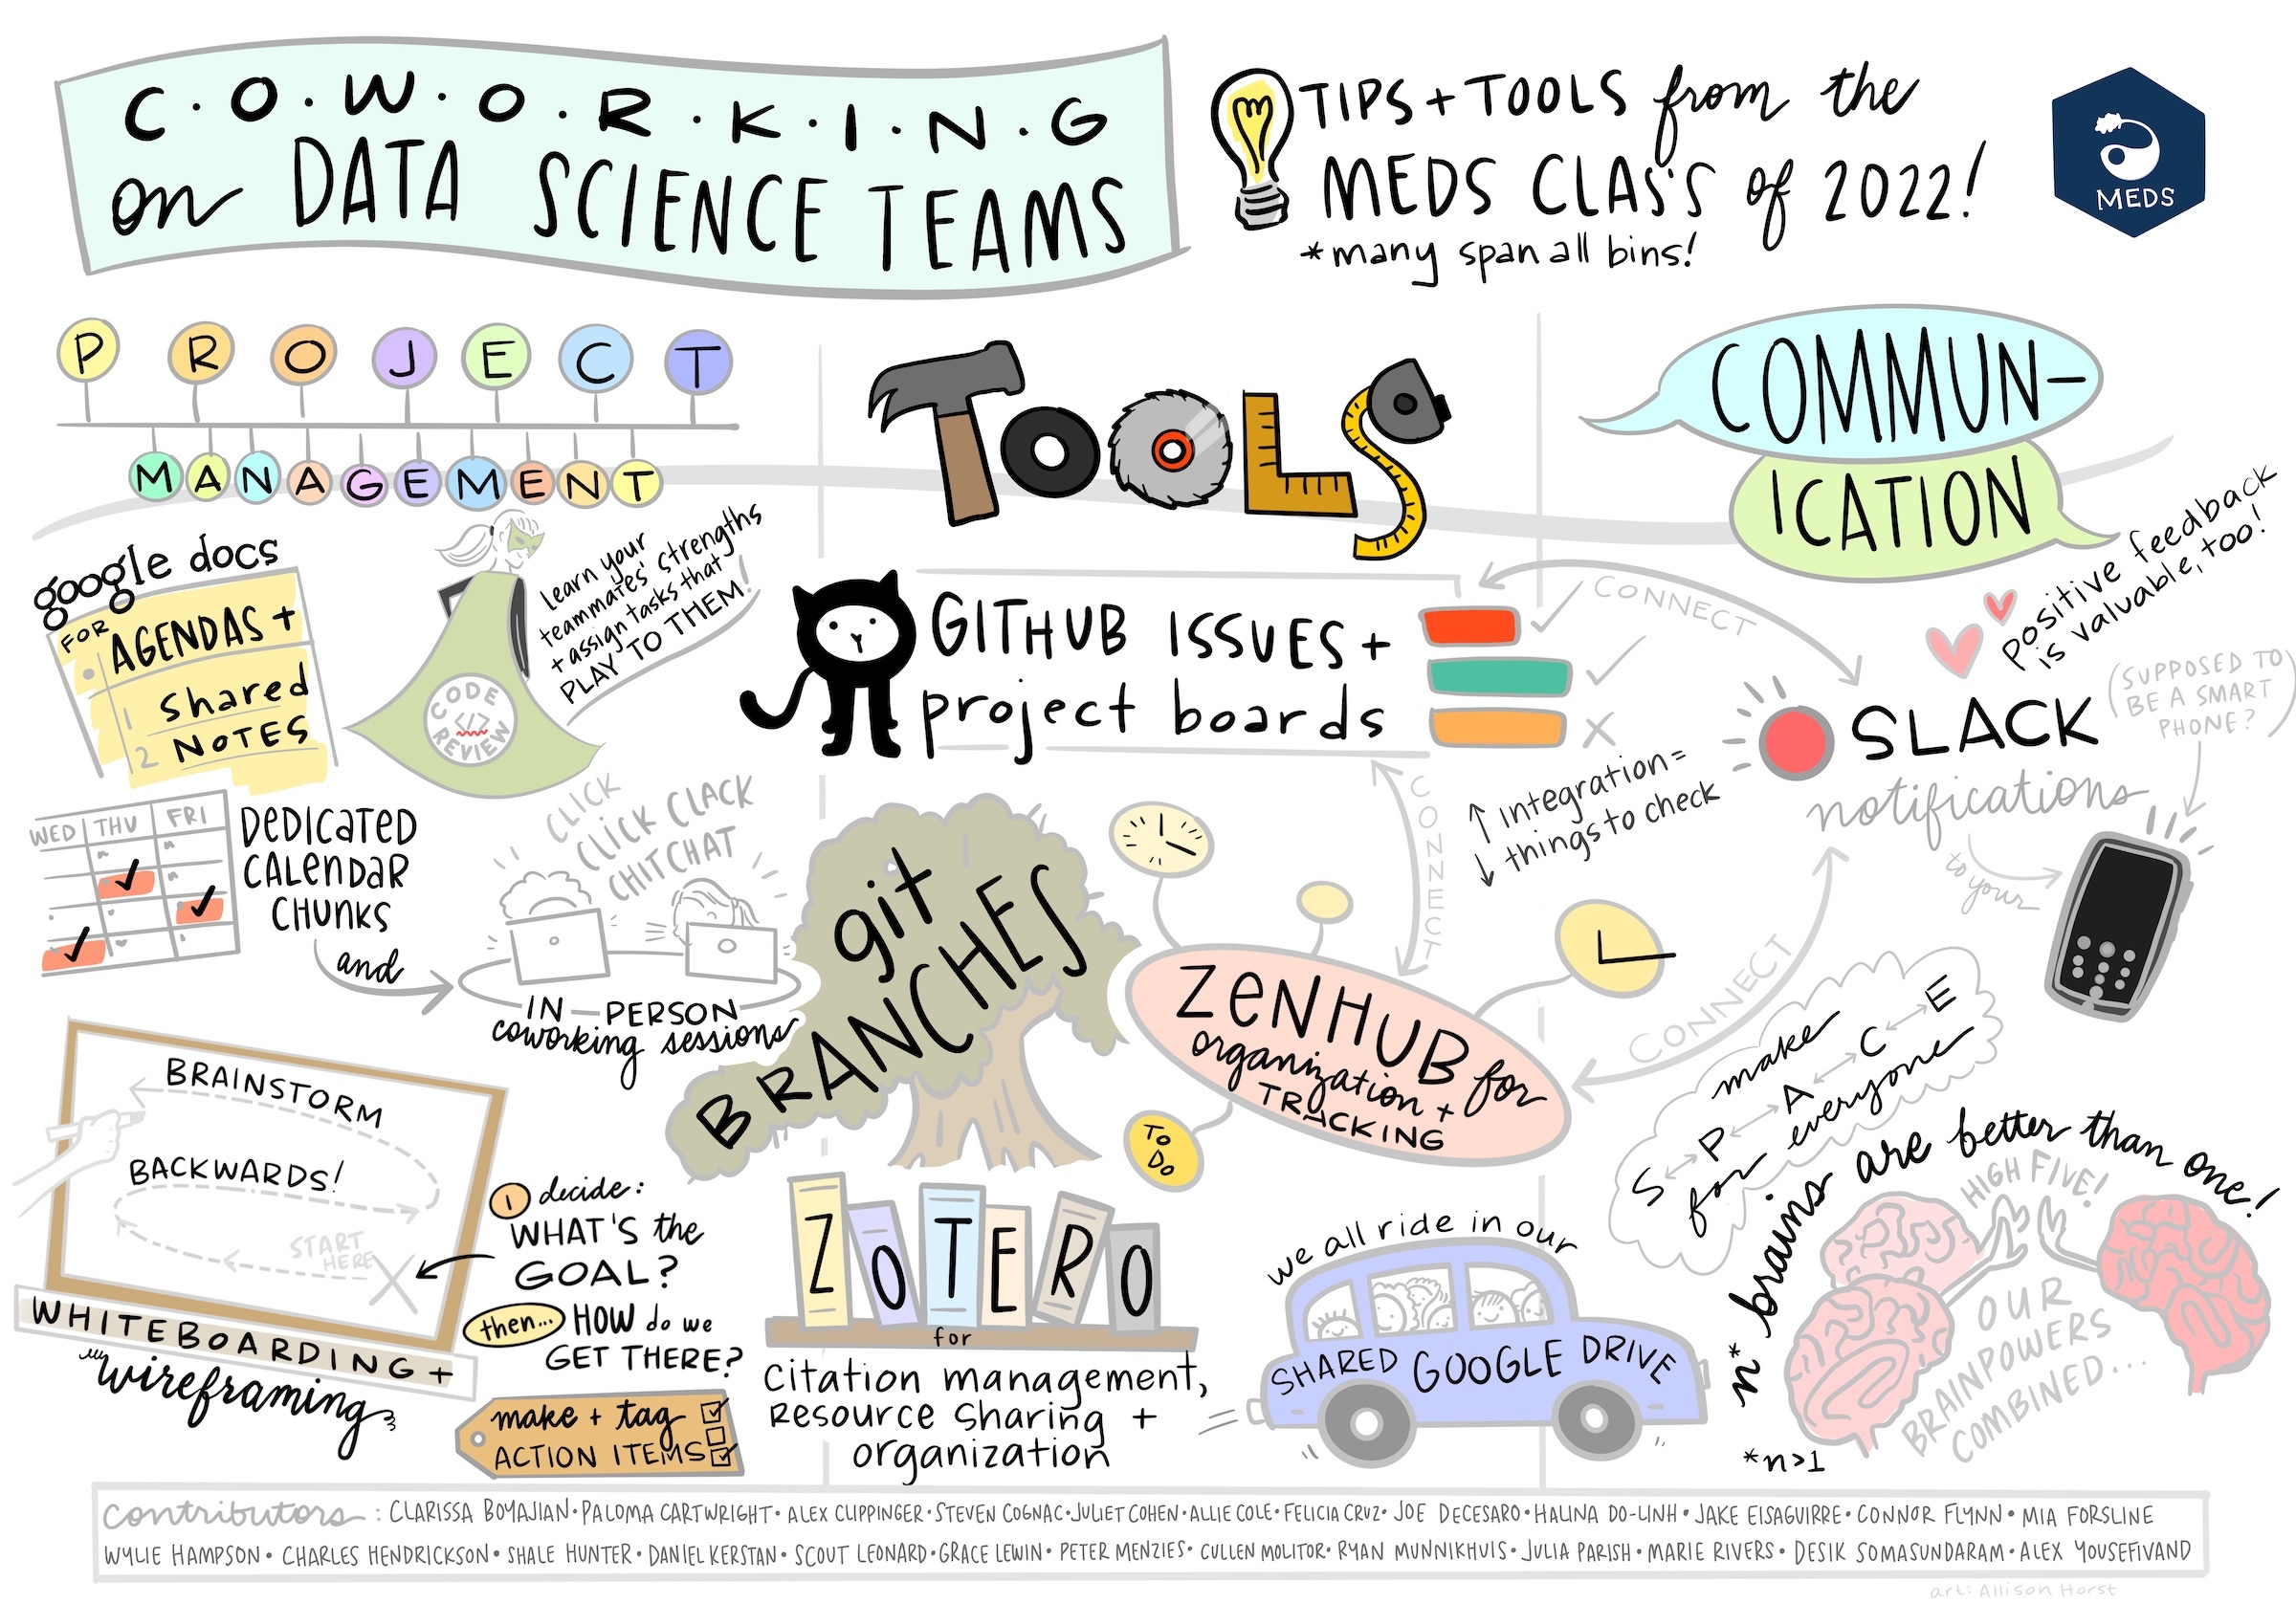 C·O·W·O·R·K·I·N·G
on DATA SCIENCE TEAMS
TIPS + TOOLS from the
MEDS CLASS of 2022!
*many span all bins!
MEDS
PROJECT
MANAGEMENT
google docs
FOR AGENDAS +
1 Shared
2 NOTES
CODE
</>
REVIEW
Learn your
teammates' strengths
+ assign tasks that
PLAY TO THEM!
WED THU FRI
DEDICATED
CALENDAR
CHUNKS
and
CLICK
CLICK CLACK
CHITCHAT
IN-PERSON
coworking sessions
BRAINSTORM
BACKWARDS!
START
HERE
WHITEBOARDING +
wireframing
1 decide:
WHAT'S the
GOAL?
then... HOW do we
GET THERE?
make + tag
ACTION ITEMS
TOOLS
GITHUB ISSUES +
project boards
CONNECT
CONNECT
↑ integration =
↓ things to check
git
BRANCHES
ZENHUB for
organization +
TRACKING
TO
DO
ZOTERO
for
citation management,
Resource Sharing +
organization
we all ride in our
SHARED GOOGLE DRIVE
COMMUN-
ICATION
positive feedback
is valuable, too!
SLACK
notifications
to your
(SUPPOSED TO
BE A SMART
PHONE?)
CONNECT
make
S↔P↔A↔C↔E
for everyone
n* brains are better than one!
HIGH FIVE!
OUR
BRAINPOWERS
COMBINED...
*n>1
contributors: CLARISSA BOYAJIAN • PALOMA CARTWRIGHT • ALEX CLIPPINGER • STEVEN COGNAC • JULIET COHEN • ALLIE COLE • FELICIA CRUZ • JOE DECESARO • HALINA DO-LINH • JAKE EISAGUIRRE • CONNOR FLYNN • MIA FORSLINE
WYLIE HAMPSON • CHARLES HENDRICKSON • SHALE HUNTER • DANIEL KERSTAN • SCOUT LEONARD • GRACE LEWIN • PETER MENZIES • CULLEN MOLITOR • RYAN MUNNIKHUIS • JULIA PARISH • MARIE RIVERS • DESIK SOMASUNDARAM • ALEX YOUSEFIVAND
art: Allison Horst